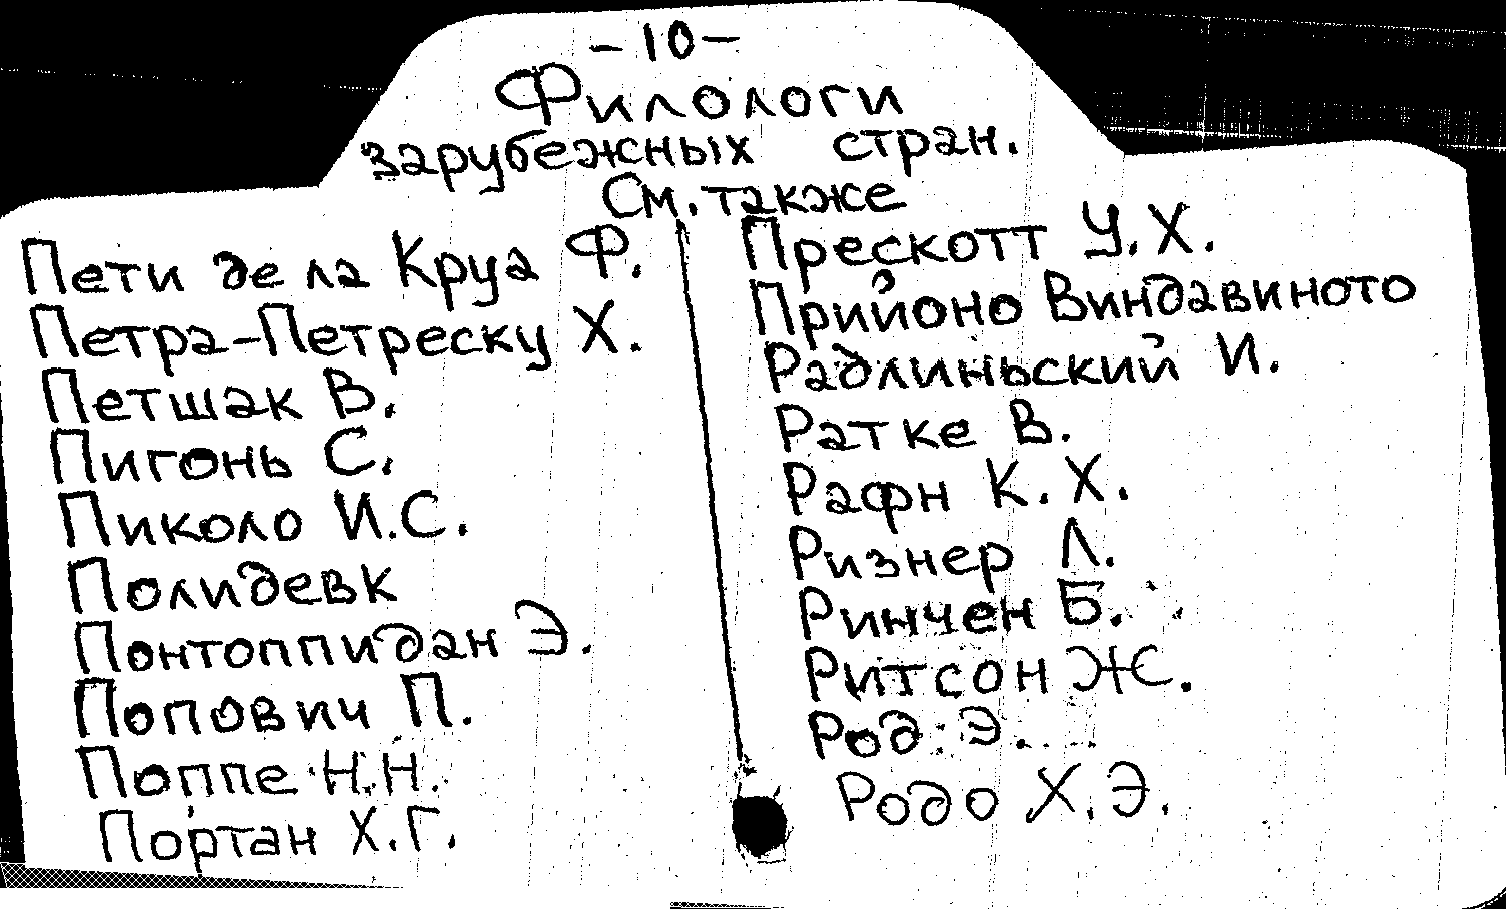 -10-
Филологи
зарубежных стран.
См. также
Пети де ла Круа Ф.
Петра-Петреску Х.
Петшак В.
Пигонь С.
Пиколо И.С.
Полидевк
Понтоппидан Э.
Попович П.
Поппе Н.Н.
Портан Х.Г.
Прескотт У.Х.
Прийоно Виндавиното
Радлиньский И.
Ратке В.
Рафн К.Х.
Ризнер Л.
Ринчен Б.
Ритсон Ж.
Род Э.
Родо Х.Э.